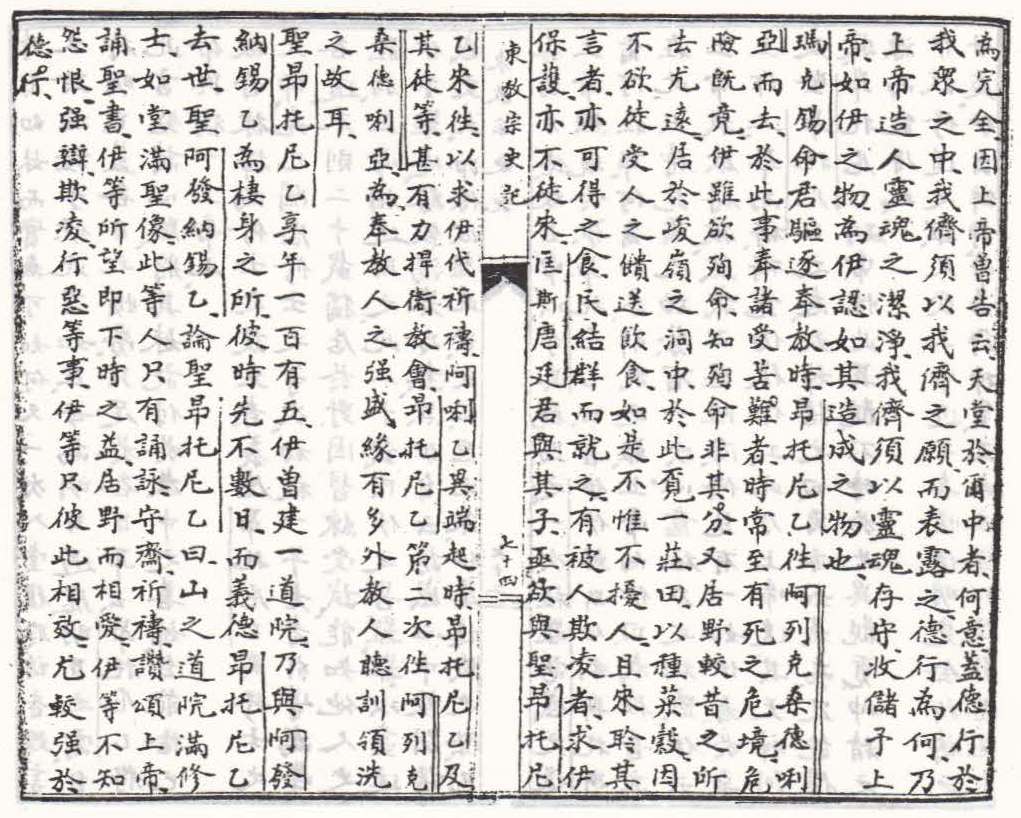 為完全因上帝曾告云天堂於爾中者何意盖德行於
我眾之中我儕須以我儕之願而表露之德行為何乃
上帝造人靈魂之潔淨我儕須以靈魂存守收儲子上
帝如伊之物為伊認如其造成之物也
瑪克錫命君驅逐奉教時昻托尼乙往阿列克桑德唎
亞而去於此事奉諸受苦難者時常至有死之危境危
險旣竟伊雖欲殉命知殉命非其分又居野較昔之所
去尤遠居於峻嶺之洞中於此覓一莊田以種菜穀因
不欲徒受人之餽送飲食如是不惟不擾人且來聆其
言者亦可得之食民結群而就之有被人欺凌者求伊
保護亦不徒來匡斯唐廷君與其子亟欲與聖昻托尼
東教宗史記
七十四
乙來往以求伊代祈禱阿唎乙異端起時昻托尼乙及
其徒等甚有力捍衞教會昻托尼乙第二次徃阿列克
桑德唎亞為奉教人之强盛緣有多外教人聽訓領洗
之故耳
聖昻托尼乙享年一百有五伊曾建一道院乃與阿發
納錫乙為棲身之所彼時先不數日而義德昻托尼乙
去世聖阿發納錫乙論聖昻托尼乙曰山之道院滿修
士如堂滿聖像此等人只有誦詠守齋祈禱讚頌上帝
誦聖書伊等所望即下時之益居野而相愛伊等不知
怨恨强辯欺凌行惡等事伊等只彼此相效尤較强於
德行